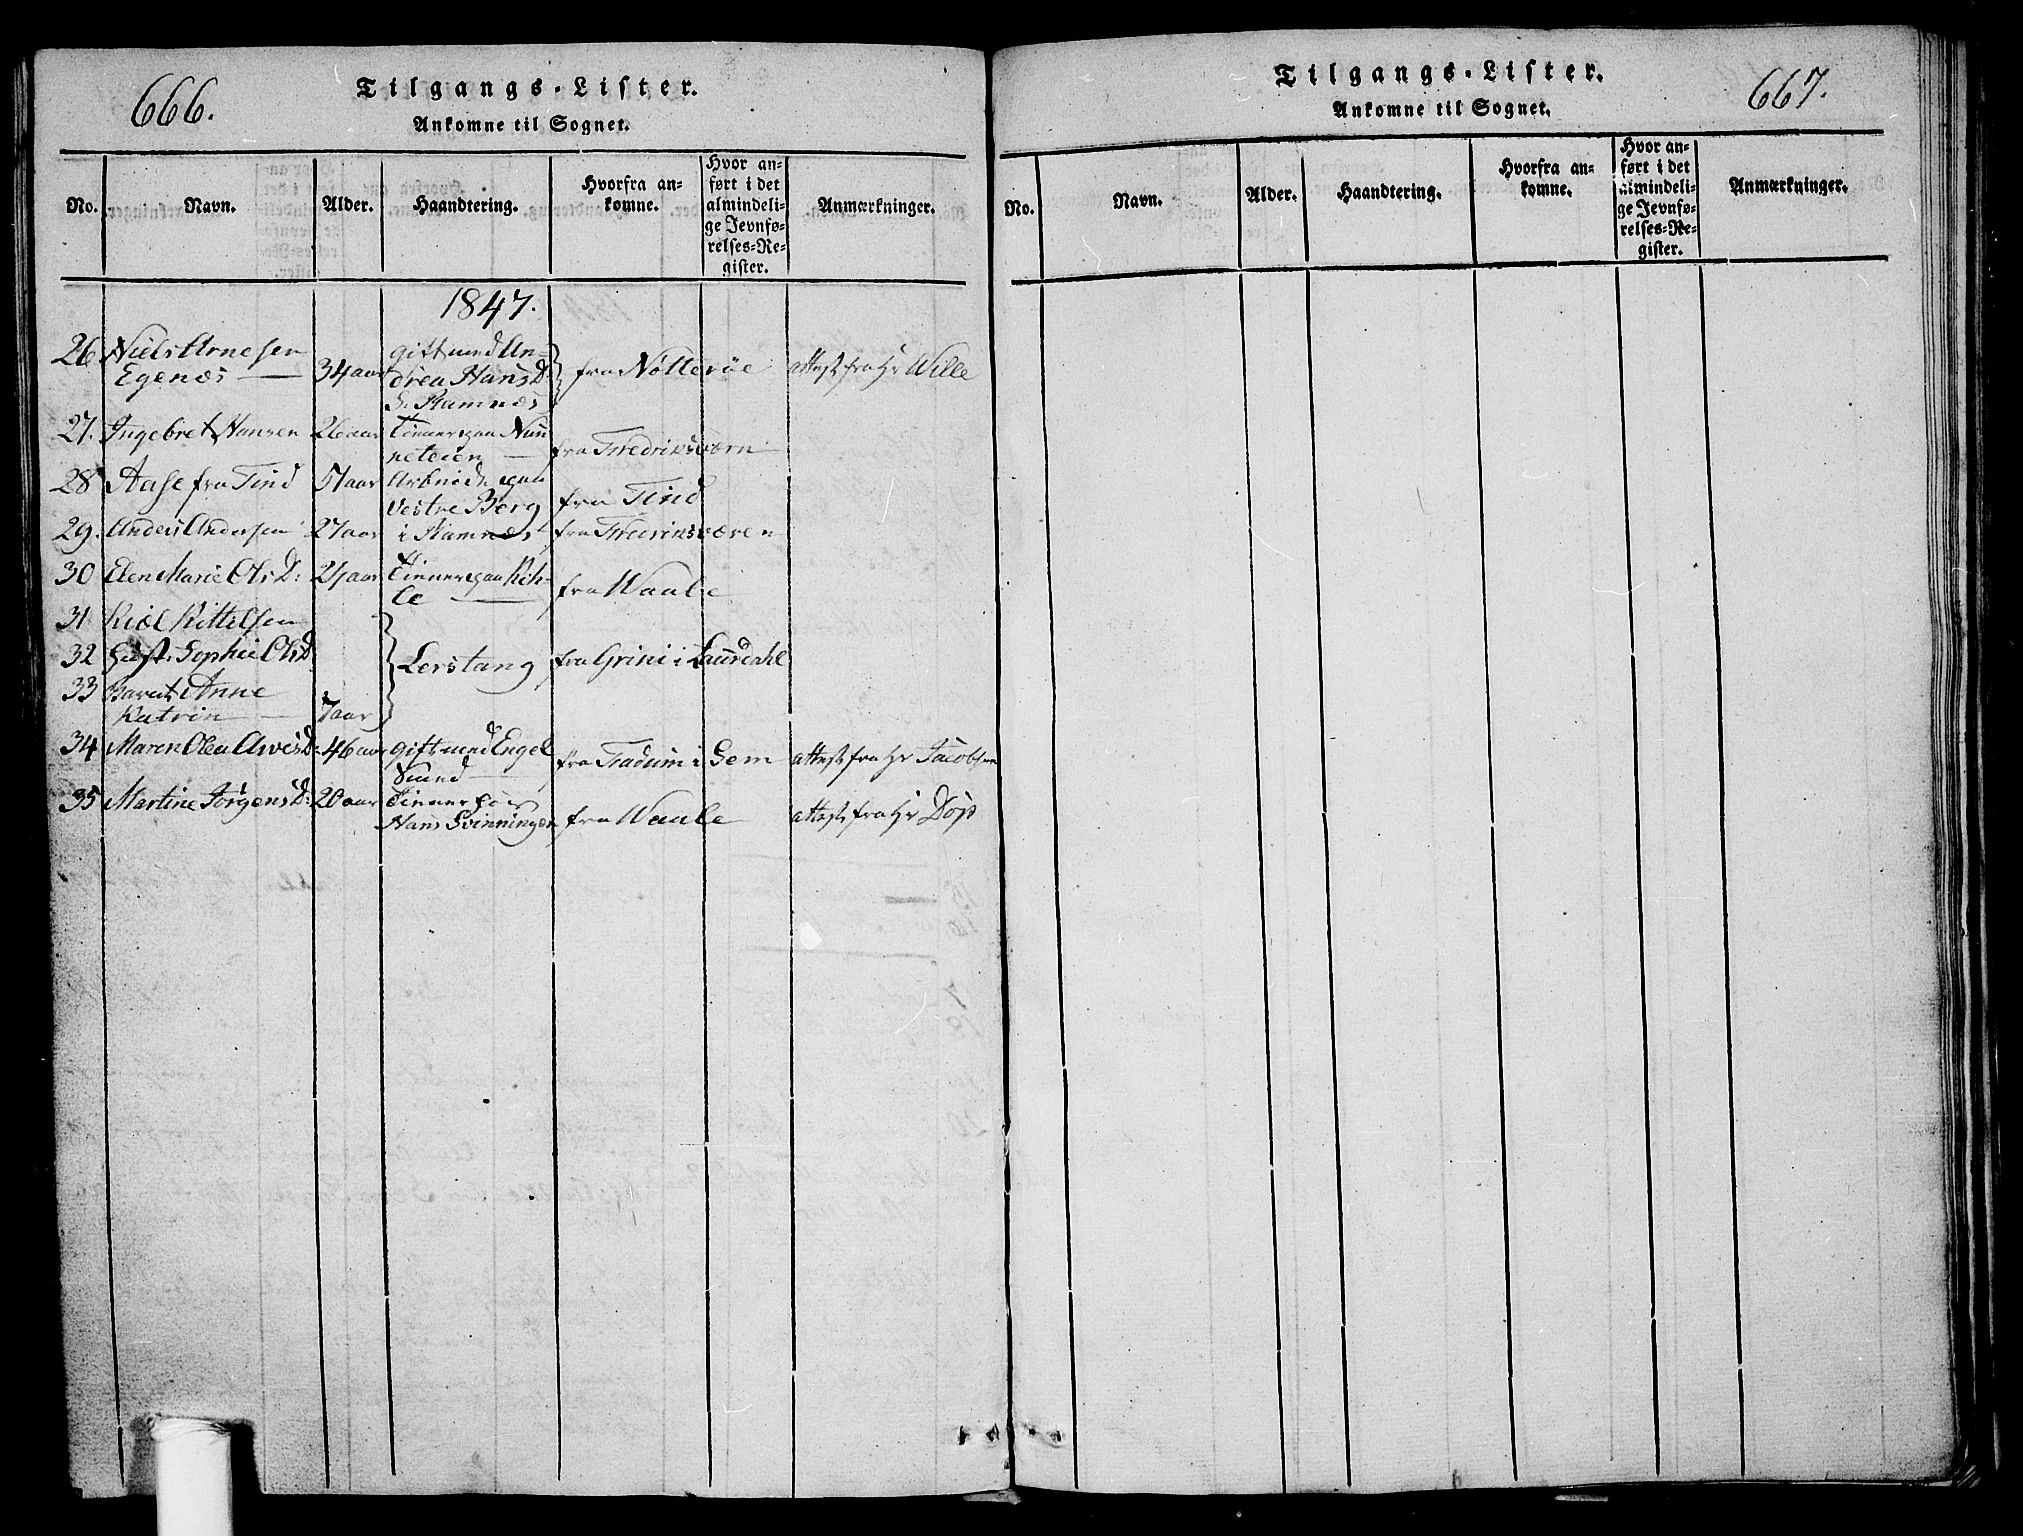 666.
Tilgangs-Lister.
Ankomne til Sognet.
No. Navn. Alder. Haandtering. Hvorfra ankomne. Hvor anført i det almindelige Jevnførelses-Register. Anmærkninger.
1847.
26 Niels Arnesen gift med An-
Egenæs — 34 aar drea HansD. fra Nötteröe attest fra Hr Wille
S. Ramnæs
27. Ingebret Hansen 26 aar Tienner paa
— fra Fredriksværn
28 Aase fra Tind 57 aar Arbeid. paa
Vestre Berg fra Tind
29. Anders Andersen 27 aar i Ramnæs fra Fredriksværen
30 Elen Marie OlsD: aar Tienner paa
— fra Waale
31 Kiöl Kittelsen
32 Sophie OlsD
Lerstang fra Grini i Laurdahl
33 Barnet Anne
Katrin — 7 aar
34 Maren Olea D: 46 aar gift med Engel
Sund — fra i Sem attest fra Hr Jacobsen
35 Martine JörgensD: 20 aar Tienner hos
Hans Svinningen fra Waale attest fra Hr
Tilgangs-Lister.
667.
Ankomne til Sognet.
No. Navn. Alder. Haandtering. Hvorfra ankomne. Hvor anført i det almindelige Jevnførelses-Register. Anmærkninger.